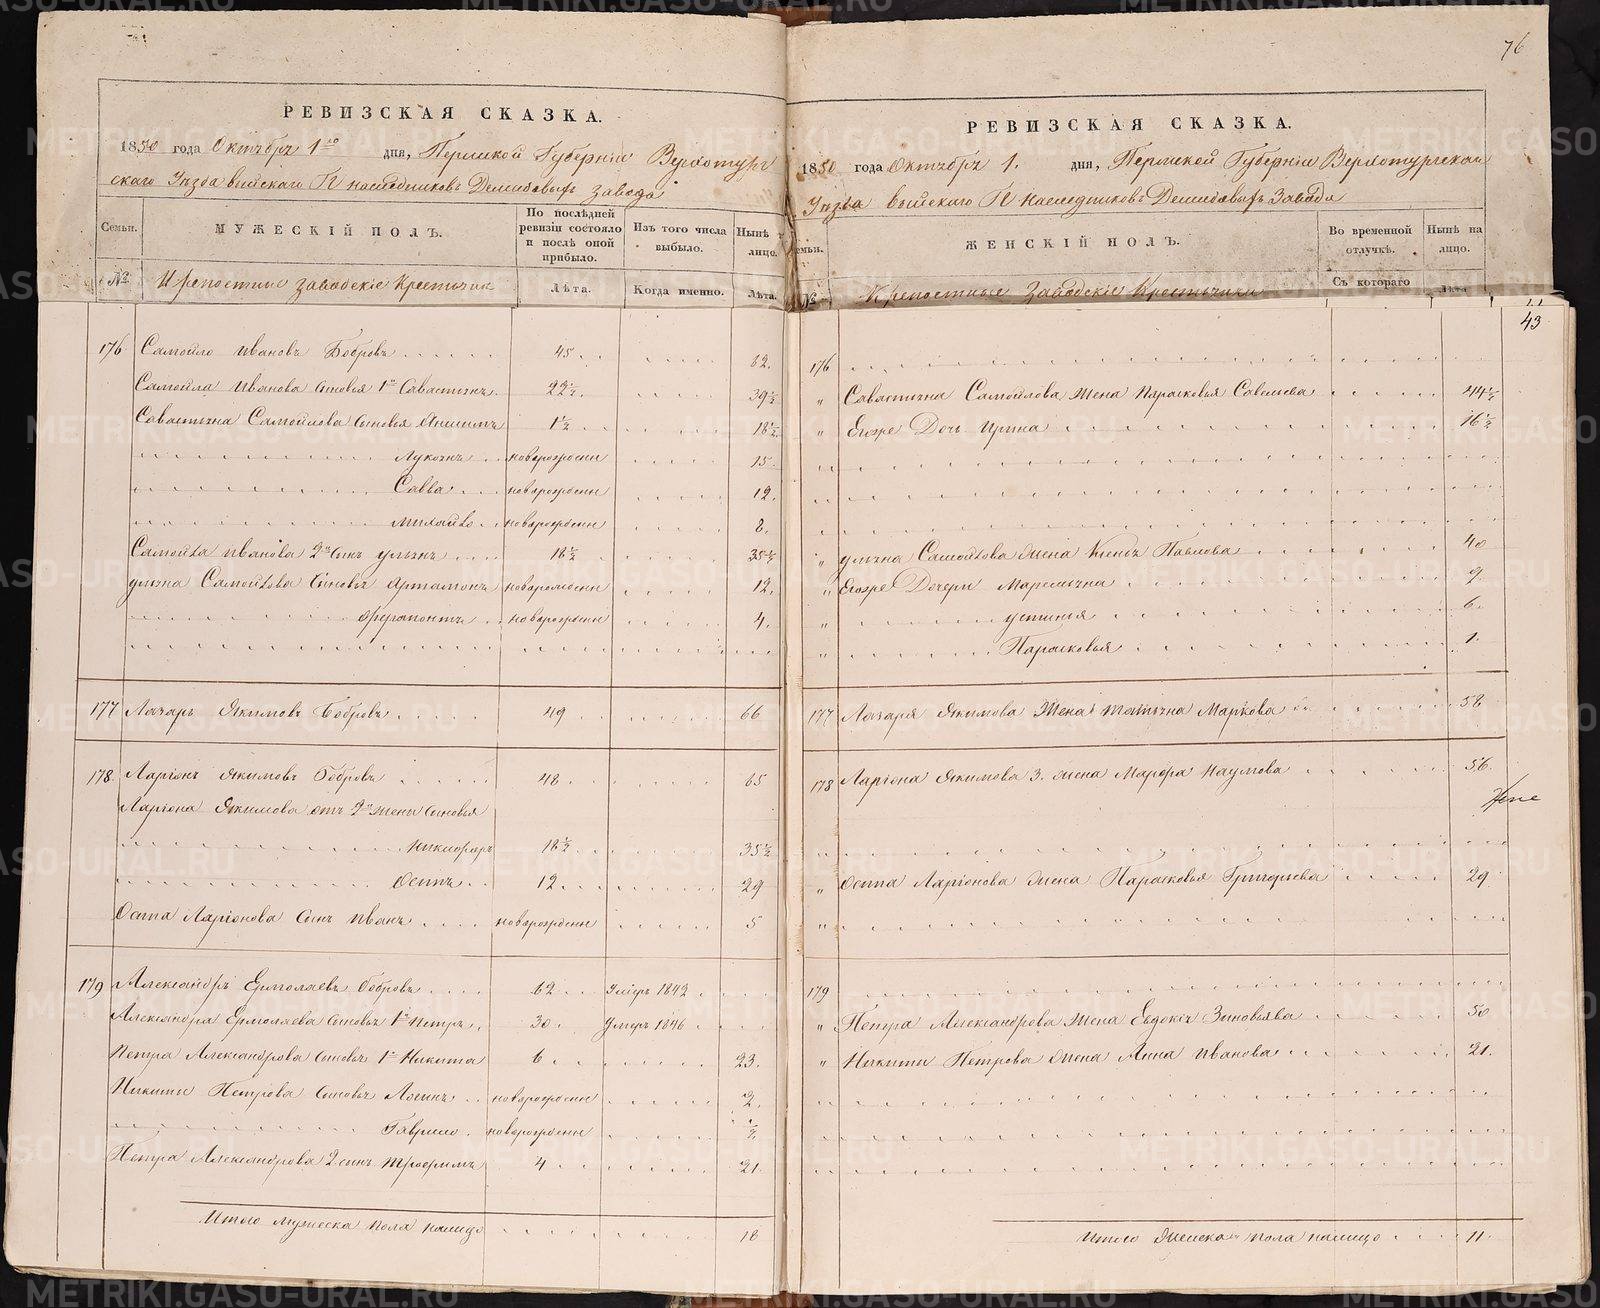 76
РЕВИЗСКАЯ СКАЗКА.
1850 года Октября 1го дня, Пермской Губерніи Верхотур
скаго Уѣзда Выйскаго Гг. наследниковъ Демидовыхъ завода
Семьи. МУЖЕСКІЙ ПОЛЪ. По послѣдней ревизіи состояло и послѣ оной прибыло. Изъ того числа выбыло. Нынѣ на лицо.
№ Крепостные заводскіе Крестьяня Лѣта. Когда именно. Лѣта.
176 Самойло Ивановъ Бобровъ 45 62.
Самойла Иванова сыновья 1й Савастьянъ 22½ 39½
Савастьяна Самойлова сыновья Якимъ 1½ 18½
Лукоянъ новорожденн 15
Савва новорожденн 12.
Михайло новорожденн 8.
Самойла Иванова 2й сынъ Ульянъ 18½ 35½
Ульяна Самойлова сыновья Артамонъ новорожденн 12.
Ферапонтъ новорожденн 4.
177 Лазарь Якимовъ Бобровъ 49 66
178 Ларіонъ Якимовъ Бобровъ 48 65
Ларіона Якимова отъ 2й жены сыновья
Никифоръ 18½ 35½
Осипъ 12 29
Осипа Ларіонова сынъ Иванъ новорожденн 5
179 Александръ Ермолаевъ Бобровъ 62 Умеръ 1842
Александра Ермолаева сыновья 1й Петръ 30 Умеръ 1846
Петра Александрова сыновья 1й Никита 6 23.
Никиты Петрова сыновья Логинъ новорожденн 2.
Гаврило новорожденн ½
Петра Александрова 2 сынъ Трофимъ 4 21.
Итого мужеска пола налицо 18
РЕВИЗСКАЯ СКАЗКА.
1850 года Октября 1. дня, Пермской Губерніи Верхотурскаго
Уѣзда Выйскаго Гг наследниковъ Демидовыхъ Завода
Семьи. ЖЕНСКІЙ ПОЛЪ. Во временной отлучкѣ. Нынѣ на лицо.
№ Крепостные Заводскіе Крестьяня Съ котораго Лѣта
43
176
" Савастьяна Самойлова жена Парасковья Савельева 44½
" Егоже Дочь Ирина 16½
" Ульяна Самойлова жена Павлова 40
" Егоже Дочери Маремьяна 9
" Устинья 6.
" Парасковья 1.
177 Лазаря Якимова Жена Татьяна Маркова 58
178 Ларіона Якимова 3. жена Марфа Наумова 56.
" Осипа Ларіонова жена Парасковья Григорьева 29
179
" Петра Александрова Жена Евдокія Зиновьева 50
" Никиты Петрова жена Анна Иванова 21.
Итого женска пола налицо 11.
METRIKI.GASO-URAL.RU